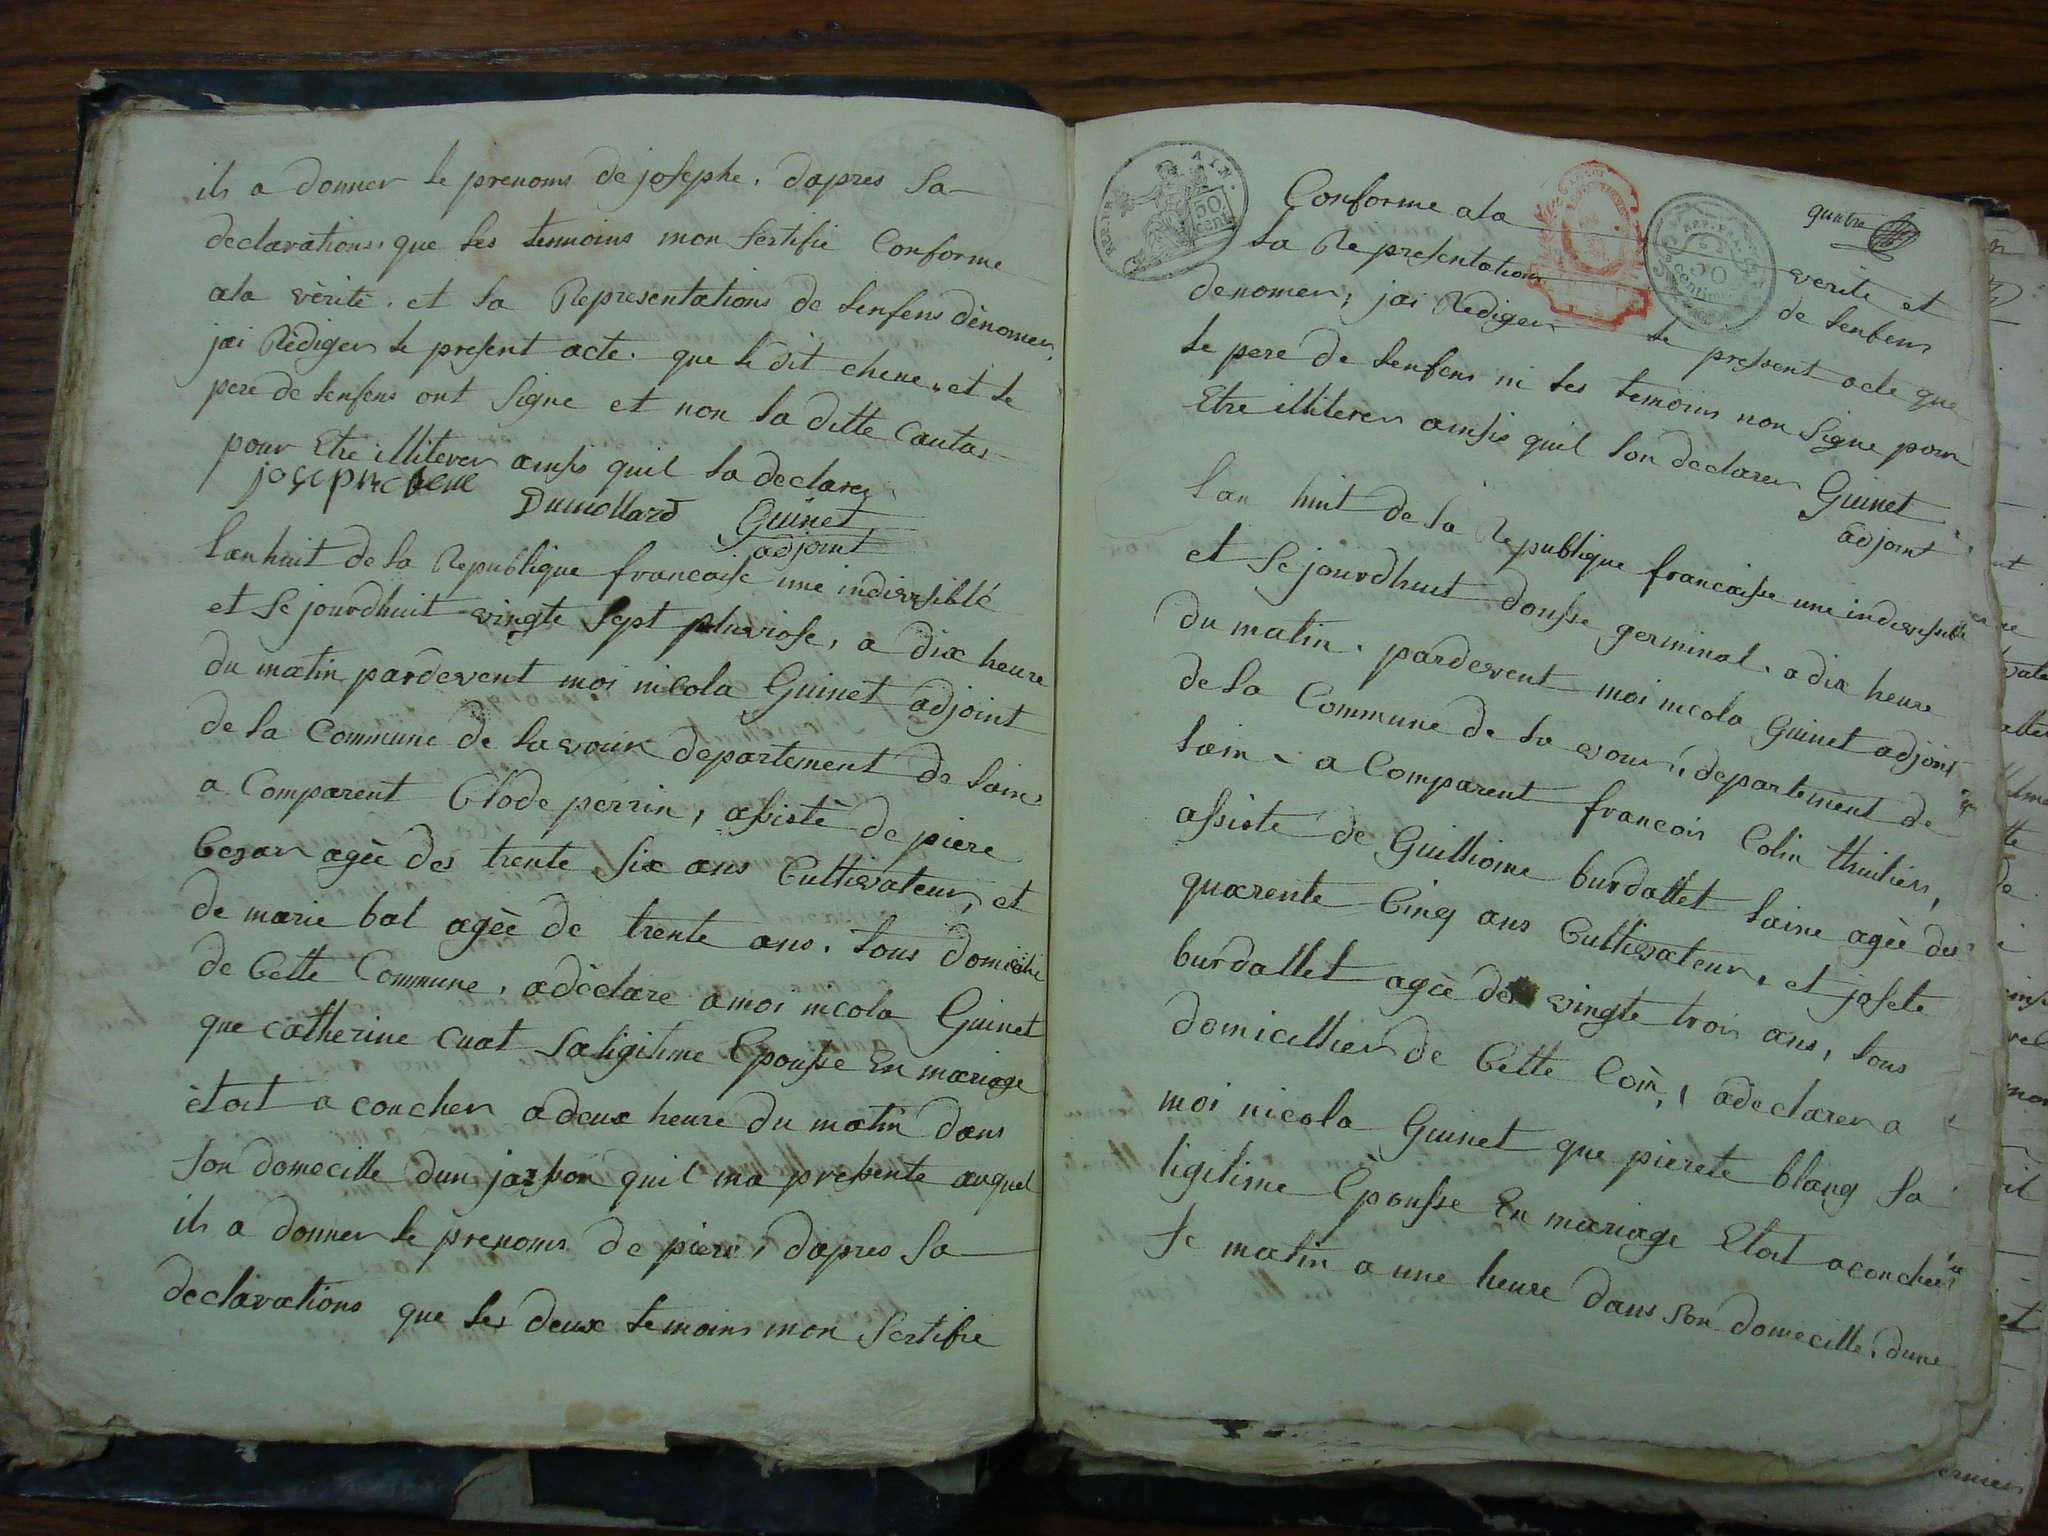 ils a donner le prenoms de josephe, dapres la
declarations, que les temoins mon sertifie Conforme
ala vèritè. et la Representations de lenfens dènomer,
jai Rèdiger le present acte. que le dit chene, et le
pere de lenfens ont signe et non la ditte Cautas
pour Etre illiterer ainsis quil la declarer
joseph chene Dumollard Guinet
adjoint
Lan huit de la Republique francaise une indivisiblé
et se jourdhuit vingte sept pluviose, a dix heure
du matin pardevent moi nicola Guinet adjoint
de la Commune de lavour departement de lain,
a Comparent Clode perrin, assistè de piere
Cezar agèe des trente six ans Cultivateur, et
de marie bal agèe de trente ans. tous domicilie
de Cette Commune, a dèclare a moi nicola Guinet
que catherine cuat saligitime Epousse En mariage
ètoit a coucher a deux heure du matin dans
son domecille dun jarson quil ma presente auquel
ils a donner le prenoms de piere, dapres la
declarations que les deux temoins mon sertifie
REP. FRA. AIN. 50 cent.
REP. FRA. 50 centimes
quatre
Conforme ala verite et
la Representations de lenfens
denomer, jai Rediger le present acte que
le pere de lenfens ni les temoins non signe pour
Etre illiterer ainsis quil lon declarer Guinet
adjoint
Lan huit de la Republique francaisse une indivissible
et se jourdhuit dousse germinal. a dix heure
du matin. pardevent moi nicola Guinet adjoint
de la Commune de la vour, departement de
lain. a Comparent francois Colin thuilier,
assiste de Guillioime burdallet laine agèe des
quarente Cinq ans Cultivateur. et josete
burdallet agèe des vingte trois ans, tous
domicillier de Cette Com, a declarer a
moi nicola Guinet que pierete blanq sa
ligitime Epousse En mariage Etoit acouchee
se matin a une heure dans son domecille. dune